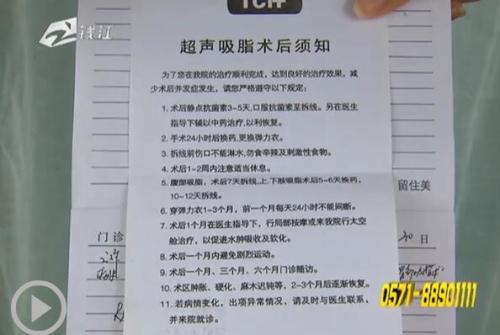 钱江
TCH
超声吸脂术后须知
为了您在我院的治疗顺利完成，达到良好的治疗效果，减
少术后并发症发生，请您严格遵守以下规定：
1. 术后静点抗菌素3-5天，口服抗菌素至拆线。另在医生
指导下辅以中药治疗，以利恢复。
2. 手术24小时后换药，更换弹力衣。
3. 拆线前伤口不能淋水，勿食辛辣及刺激性食物。
4. 术后1-2周内注意适当休息。
5. 腹部吸脂，术后7天拆线，上、下肢吸脂术后5-6天换药，
10-12天拆线。
6. 穿弹力衣1-3个月，前一个月每天24小时不能间断。
7. 术后1个月在医生指导下，行局部按摩或来我院行太空
舱治疗，以促进水肿吸收及软化。
8. 术后一个月内避免剧烈运动。
9. 术后一个月、三个月、六个月门诊随访。
10. 术区肿胀、硬化、麻木迟钝等，2-3个月后逐渐恢复。
11. 若病情变化，出项异常情况，请及时与医生联系，
并来院就诊。
留住美
门诊
日
0571-88901111